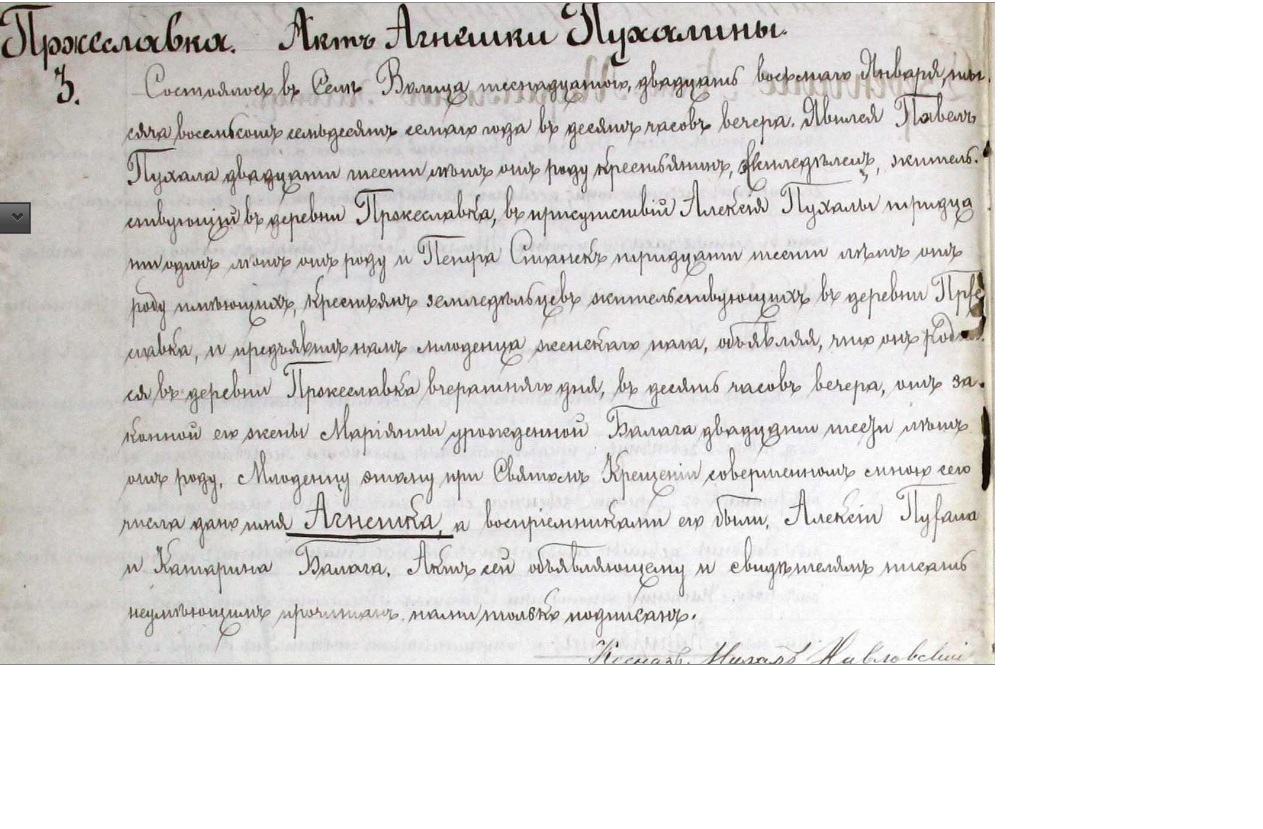 Пржеславка. Актъ Агнешки Пухалины.
3.
Состоялось въ Селѣ Волица шеснадцатого, двадцать восьмаго Января, ты-
сяча восемьсотъ семьдесятъ седмаго года въ десять часовъ вечера. Явился Павелъ
Пухала двадцати шести лѣтъ отъ роду крестьянинъ, жительс-
ствующій въ деревни Пржеславка, въ присутствіи Алексія Пухалы тридца
ти одинъ лѣтъ отъ роду и Петра Станекъ тридцати шести лѣтъ отъ
роду имѣющихъ, крестьянъ земледѣльцевъ жительствующихъ въ деревни Прже
славка, и предъявилъ намъ младенца женскаго пола, объявляя, что онъ род
ся въ деревни Пржеславка вчерашняго дня, въ десять часовъ вечера, отъ за-
конной его жены Маріянны урожденной Балага двадцати шести лѣтъ
отъ роду. Младенцу этому при Святомъ Крещеніи совершенномъ мною сего
числа дано имя Агнешка, а воспріемниками его были, Алексій Пухала
и Катарина Балага. Актъ сей объявляющему и свидѣтелямъ писать
неумѣющимъ прочитанъ, нами только подписанъ.